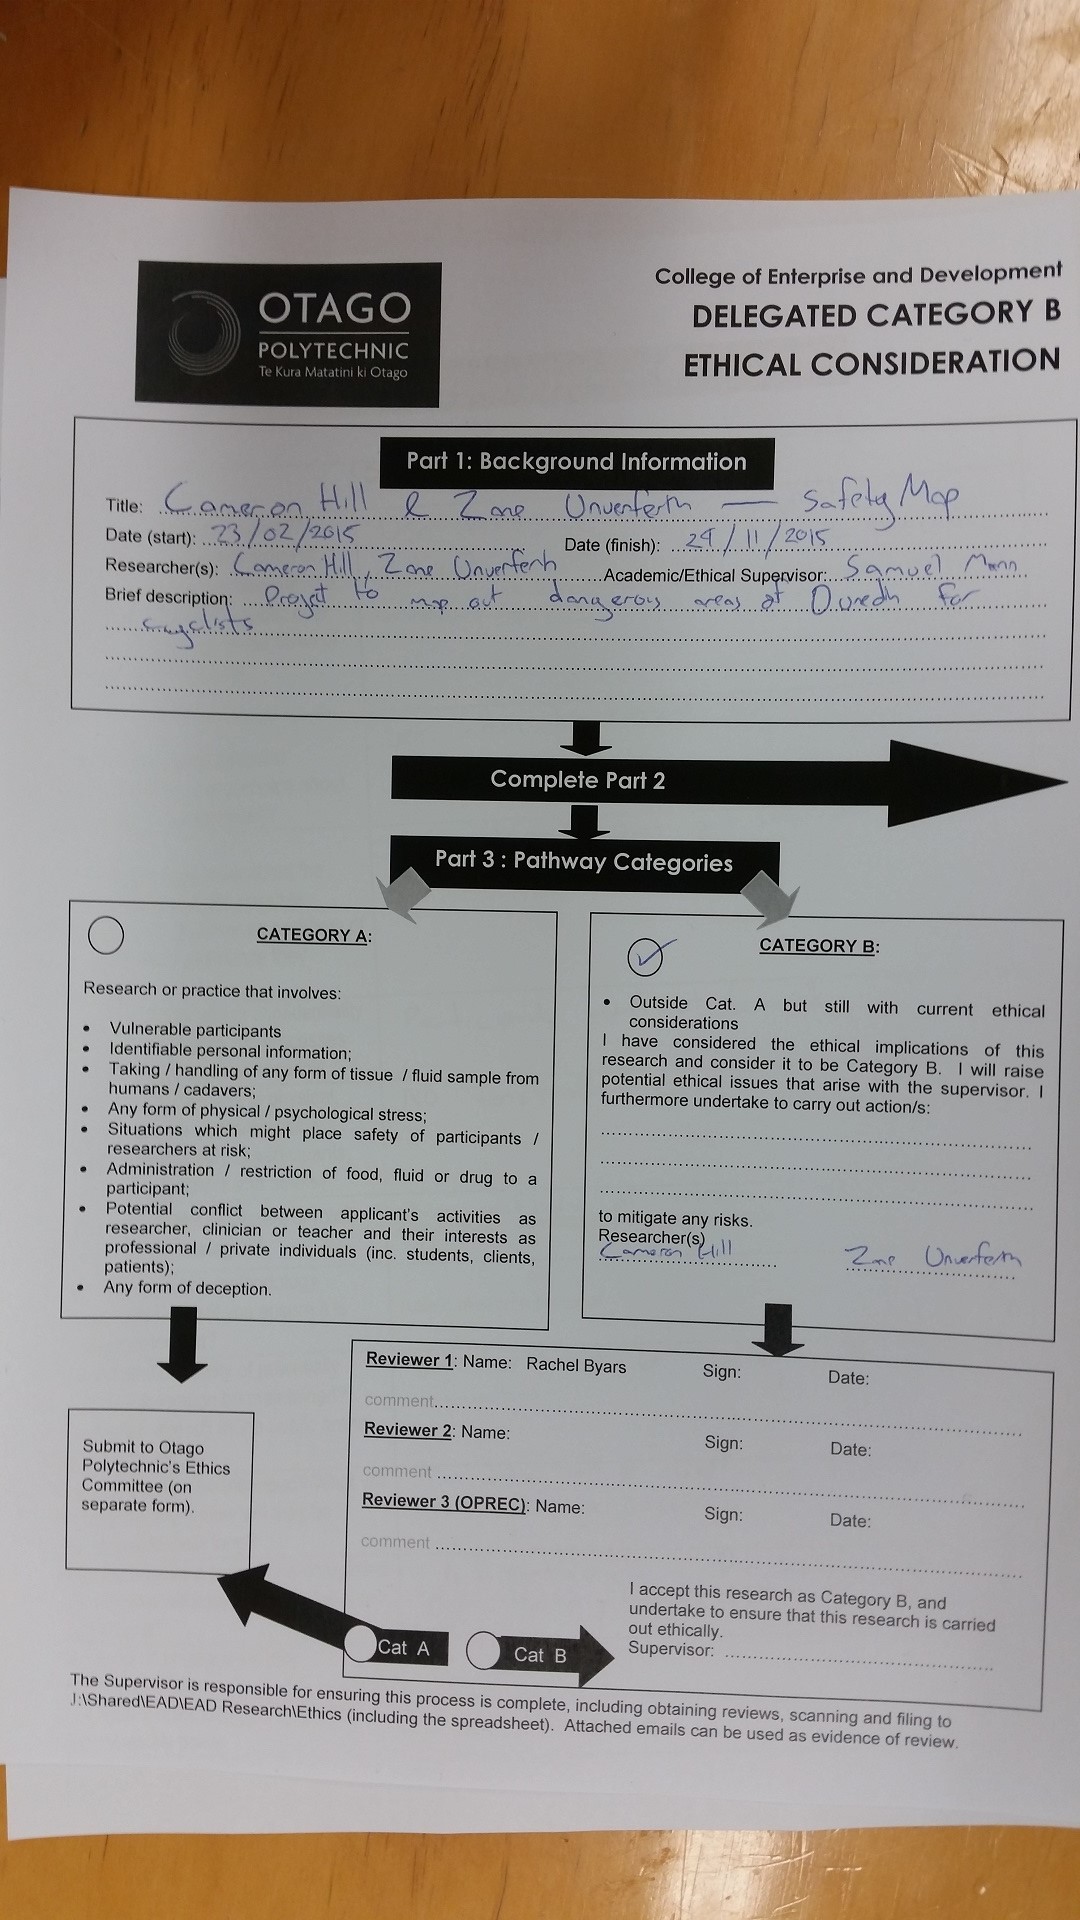 OTAGO
POLYTECHNIC
Te Kura Matatini ki Otago
College of Enterprise and Development
DELEGATED CATEGORY B
ETHICAL CONSIDERATION
Part 1: Background Information
Title: Cameron Hill & Zane Unverferth — Safety Map
Date (start): 23/02/2015 Date (finish): 24/11/2015
Researcher(s): Cameron Hill, Zane Unverferth Academic/Ethical Supervisor: Samuel Mann
Brief description: Project to map out dangerous areas of for
cyclists
Complete Part 2
Part 3 : Pathway Categories
CATEGORY A:
Research or practice that involves:
• Vulnerable participants
• Identifiable personal information;
• Taking / handling of any form of tissue / fluid sample from
humans / cadavers;
• Any form of physical / psychological stress;
• Situations which might place safety of participants /
researchers at risk;
• Administration / restriction of food, fluid or drug to a
participant;
• Potential conflict between applicant's activities as
researcher, clinician or teacher and their interests as
professional / private individuals (inc. students, clients,
patients);
• Any form of deception.
CATEGORY B:
• Outside Cat. A but still with current ethical
considerations
I have considered the ethical implications of this
research and consider it to be Category B. I will raise
potential ethical issues that arise with the supervisor. I
furthermore undertake to carry out action/s:
to mitigate any risks.
Researcher(s)
Cameron Hill Zane Unverferth
Submit to Otago
Polytechnic's Ethics
Committee (on
separate form).
Reviewer 1: Name: Rachel Byars Sign: Date:
comment
Reviewer 2: Name: Sign: Date:
comment
Reviewer 3 (OPREC): Name: Sign: Date:
comment
I accept this research as Category B, and
undertake to ensure that this research is carried
out ethically.
Supervisor:
Cat A Cat B
The Supervisor is responsible for ensuring this process is complete, including obtaining reviews, scanning and filing to
J:\Shared\EAD\EAD Research\Ethics (including the spreadsheet). Attached emails can be used as evidence of review.